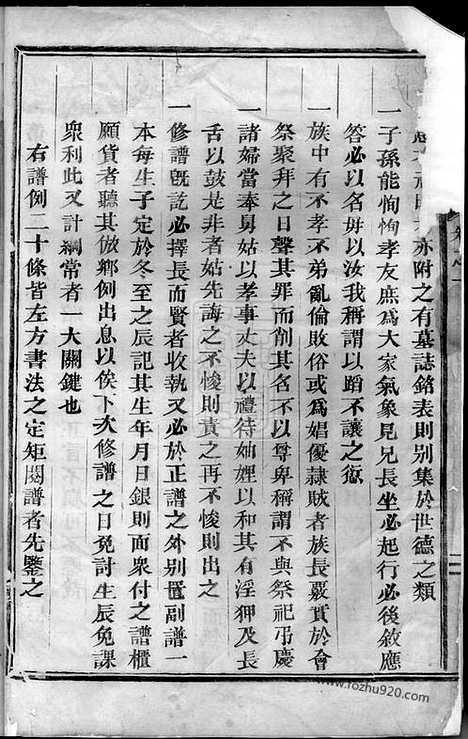 亦附之有墓誌銘表則別集於世德之類
一子孫能恂恂孝友庶為大家氣象見兄長坐必起行必後敘應
答必以名毋以汝我稱謂以蹈不讓之愆
一族中有不孝不弟亂倫敗俗或為娼優隸賊者族長覈實於會
祭聚拜之日聲其罪而削其名不以尊卑稱謂不與祭祀弔慶
一諸婦當奉舅姑以孝事丈夫以禮待妯娌以和其有淫狎及長
舌以鼓是非者姑先誨之不悛則責之再不悛則出之
一修譜旣訖必擇長而賢者收執又必於正譜之外別置副譜一
本每生子定於冬至之辰記其生年月日銀則面衆付之譜櫃
願貨者聽其倣鄉例出息以俟下次修譜之日免討生辰免課
衆利此又計綱常者一大關鍵也
右譜例二十條皆左方書法之定矩閱譜者先鑒之
www.fozhu920.com